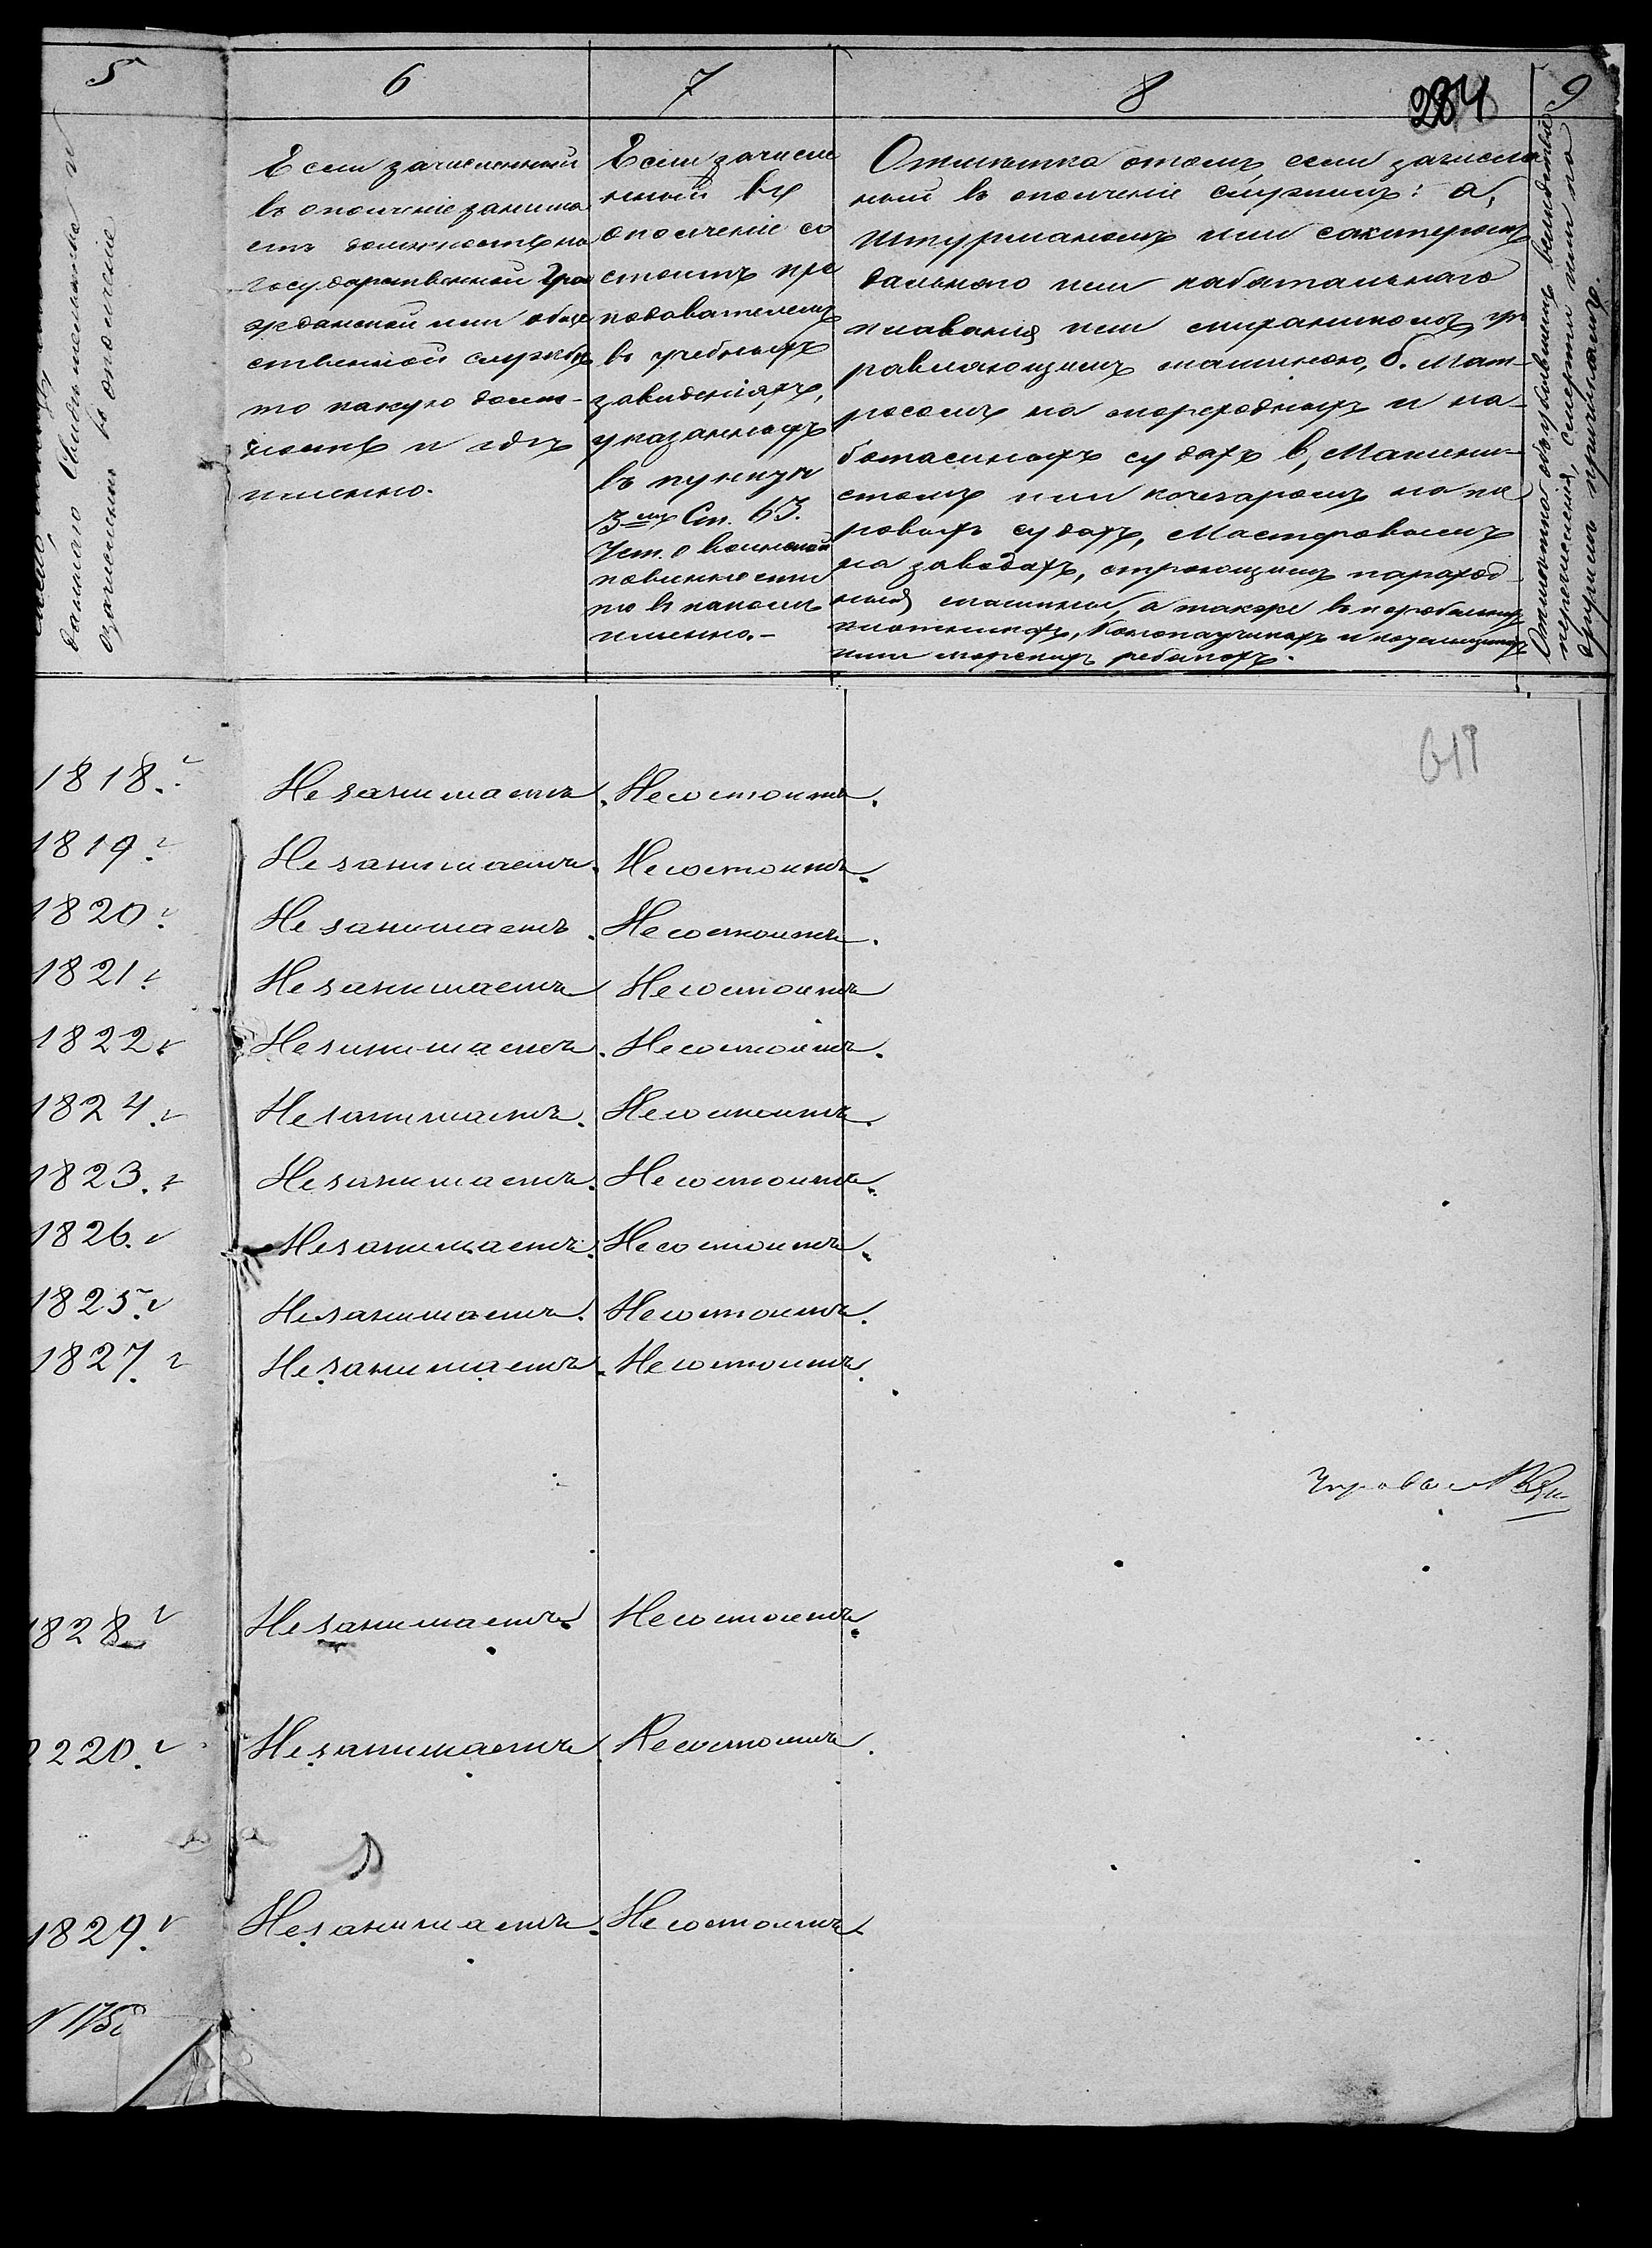 5 6 7 8 9
284
даннаго Свидѣтельства и
о зачисленіи въ ополченіе
Если зачисленный
въ ополченіе занима
етъ должность на
государственной Гра
жданской или обще
ственной службѣ
то какую долж-
ность и гдѣ
именно.
Если зачисле
нный въ
ополченіе со
стоитъ пре
подавателемъ
въ учебныхъ
заведеніяхъ,
указанныхъ
въ пунктѣ
3емъ Ст. 63.
Уст. о воинской
повинности
то въ какомъ
именно.-
Отмѣтка о томъ, если зачислен
ный въ ополченіе служилъ: а,
штурманомъ или шкиперомъ
дальняго или каботажнаго
плаванія или механикомъ, уп
равляющимъ машиною, б. Мат-
росомъ на мореходныхъ и ка-
ботажныхъ судахъ в, Машини-
стомъ или кочегаромъ на па
ровыхъ судахъ, Мастеровымъ
на заводахъ, строющимъ пароход-
ныя машины, а также въ корабельныхъ
плотникахъ, Конопатчикахъ и котельщикахъ
или морскихъ рыбакахъ.
Отмѣтка объ убывшихъ вслѣдствіе
перечисленія, смерти или по
другимъ причинамъ.
1818. Не занимаетъ. Не состоитъ.
1819. Не занимаетъ. Не состоитъ.
1820. Не занимаетъ. Не состоитъ.
1821. Не занимаетъ Не состоитъ
1822. Не занимаетъ. Не состоитъ.
1824. Не занимаетъ. Не состоитъ.
1823. Не занимаетъ. Не состоитъ.
1826. Не занимаетъ. Не состоитъ.
1825. Не занимаетъ. Не состоитъ.
1827. Не занимаетъ. Не состоитъ.
1828 Не занимаетъ. Не состоитъ.
2220. Не занимаетъ. Не состоитъ.
1829. Не занимаетъ. Не состоитъ.